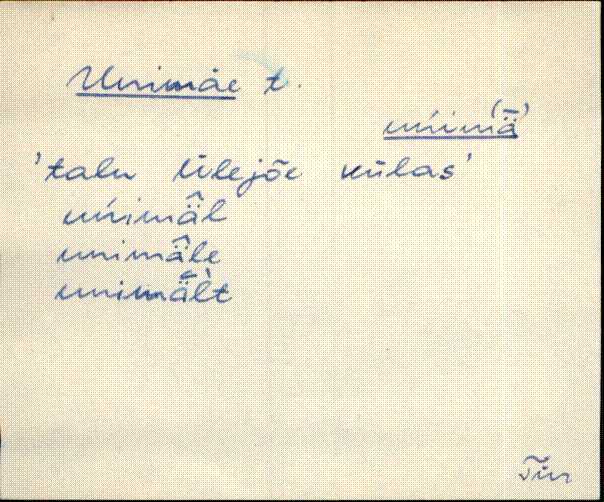 Unimäe t.
unimä(̄)
'talu Ülejõe külas'
unimä̂l
unimä̂le
unimä̆l̀t